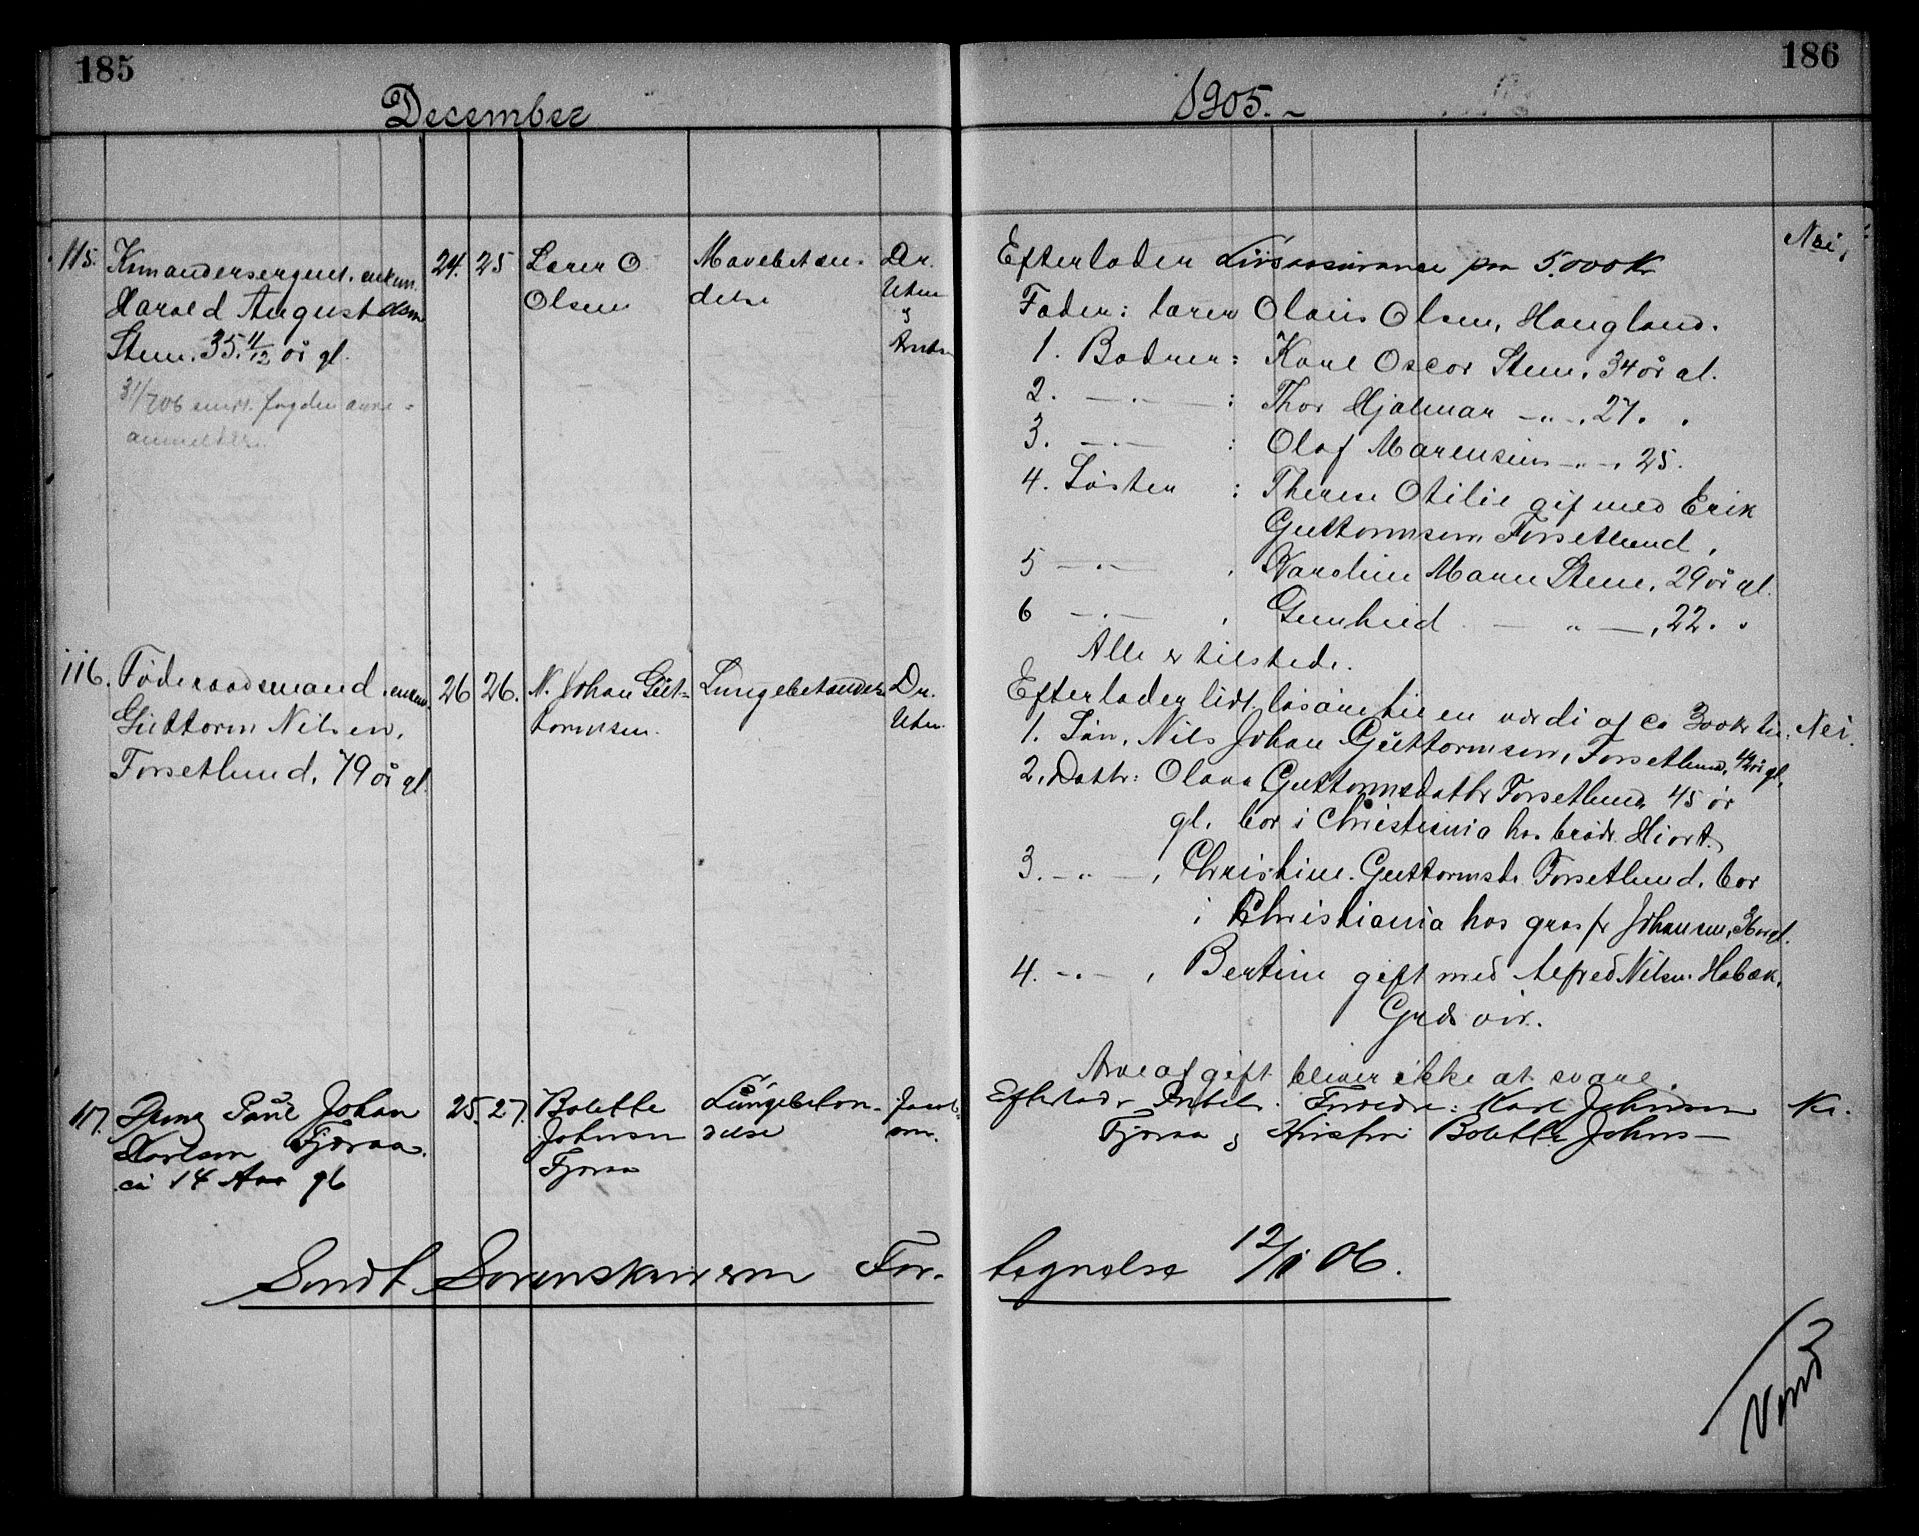 185
186
December
1905.-
115.
Harald August Olsen
Sten. 35 11/12 år gl.
anmelder.
24. 25
Lærer O.
Olsen
Mavebetæn-
delse
Dr.
Uten
Nei,
Efterlader Livsassurance paa 5.000 Kr
Fader: lærer Olaus Olsen, Haugland.
1. Brødrer: Karl Oscar Stene, 34 år gl.
2. —.— : Thor Hjalmar —„—, 27. „
3. —.— : Olaf Marensius —„—, 25.
4. Søster : Therese Otilie gift med Erik
Guttormsen Forsetlund.
5 —.— , Karoline Marie Stene, 29 år gl.
6 —.— , Gunhild — „ —, 22. „
Alle er tilstede.
116. Föderaadsmand, enkem.
Guttorm Nilsen,
Forsetlund, 79 år gl.
26 26.
N. Johan Gut-
tormsen.
Lungebetændelse
Dr.
Uten.
Efterlader lidt løsøre til en værdi af ca 300 kr til. Nei.
1. Sön, Nils Johan Guttormsen, Forsetlund, 42 år gl.
2. Dattr: Olava Guttormsdattr Forsetlund, 45 år
gl. bor i Christiania hos brødr. Hiort.
3. —„— , Christine Guttormsdr Forsetlund, bor
i Christiania hos Johansen, 36 år gl.
4. —.— , Bertine gift med Alfred Nilsen Habæk,
Arveafgift bliver ikke at svare.
117. Dreng Paul Johan
Karlsen Fjøraa.
ca 14 Aar gl
25. 27.
Bolette
Johnsen
Fjøraa
Lungebetæn-
delse
Efterlader Intet. Forældre: Karl Johnsen
Fjøraa & Hustru Bolette Johns—
Sendt Sorenskriveren For-
tegnelse 12/1 06.
Vend